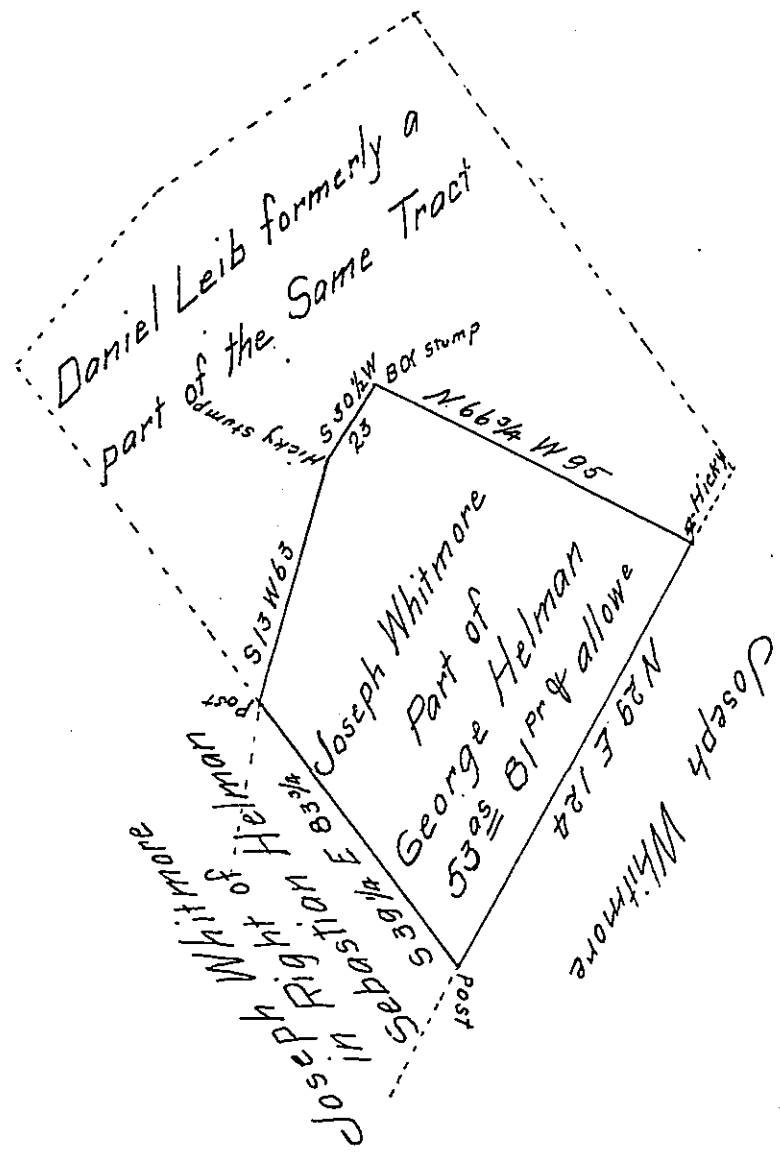 Daniel Leib formerly a
part of the Same Tract
Hicky stump
S 30½ W
23
BO stump
N. 66¾ W 95
Hicky
S 13 W 63
Post
Joseph Whitmore
Part of
George Helman
53as 81pr & allowe
N 29 E 124
Joseph Whitmore
S 39¼ E 83¾
Post
Joseph Whitmore
in Right of
Sebastian Helman